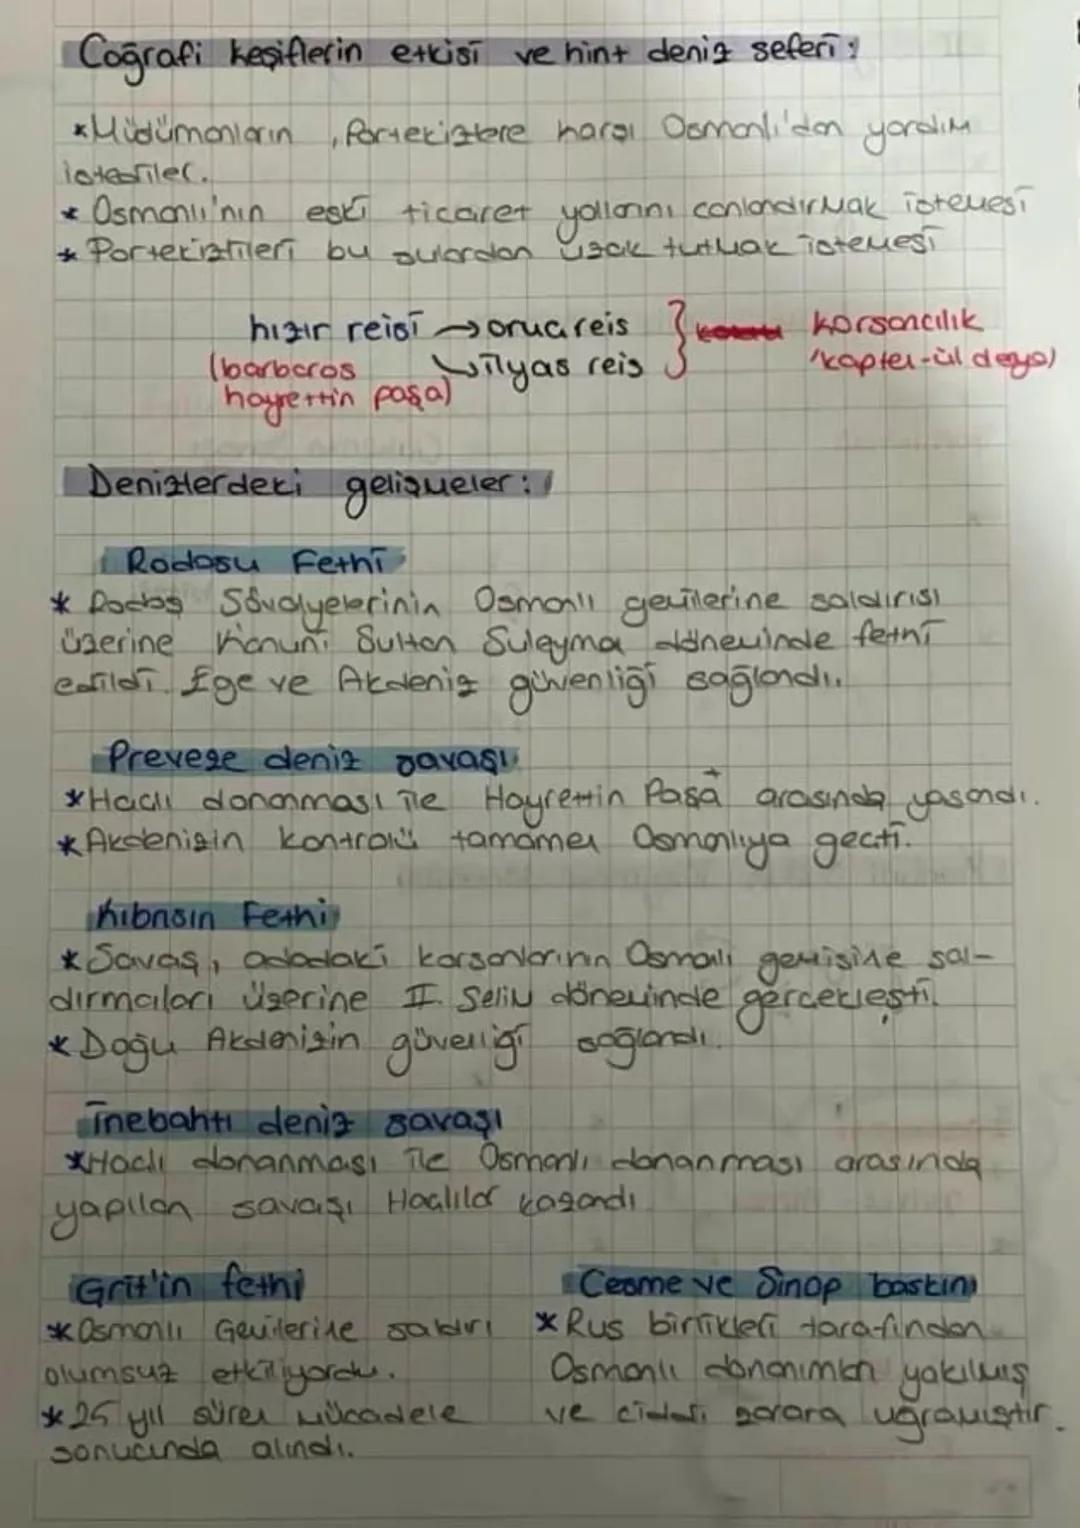 Coğrafi keşiflerin etkisi ve hint deniz seferi:
*Müslümanların, Portekizlere karşı Osmanlı'dan yardım
istediler.
* Osmanlı'nın eski ticaret yollarını canlandırmak istemesi
* Portekizlileri bu sulardan uzak tutmak istemesi
hızır reisi → oruç reis } korsancılık
(barbaros ↘ ilyas reis (kapten-ül derya)
hayrettin paşa)
Denizlerdeki gelişmeler:
Rodosu Fethi
* Rodos Şövalyelerinin Osmanlı gemilerine saldırısı
üzerine Kanuni Sultan Süleyman döneminde fethi
edildi. Ege ve Akdeniz güvenliği sağlandı.
Preveze deniz savaşı
*Haçlı donanması ile Hayrettin Paşa arasında yaşandı.
*Akdenizin kontrolü tamamen Osmanlıya geçti.
Kıbrısın Fethi
*Savaş, adadaki korsanlarının Osmanlı gemisine sal-
dırmaları üzerine II. Selim döneminde gerçekleşti.
* Doğu Akdenizin güvenliği sağlandı.
İnebahtı deniz savaşı
*Haçlı donanması ile Osmanlı donanması arasında
yapılan savaşı Haçlılar kazandı
Girit'in fethi
*Osmanlı Gemilerine saldırı
olumsuz etkiliyordu.
*25 yıl süren mücadele
sonucunda alındı.
Çeşme ve Sinop baskını
*Rus birlikleri tarafından
Osmanlı donanması yakılmış
ve ciddi zarara uğramıştır.